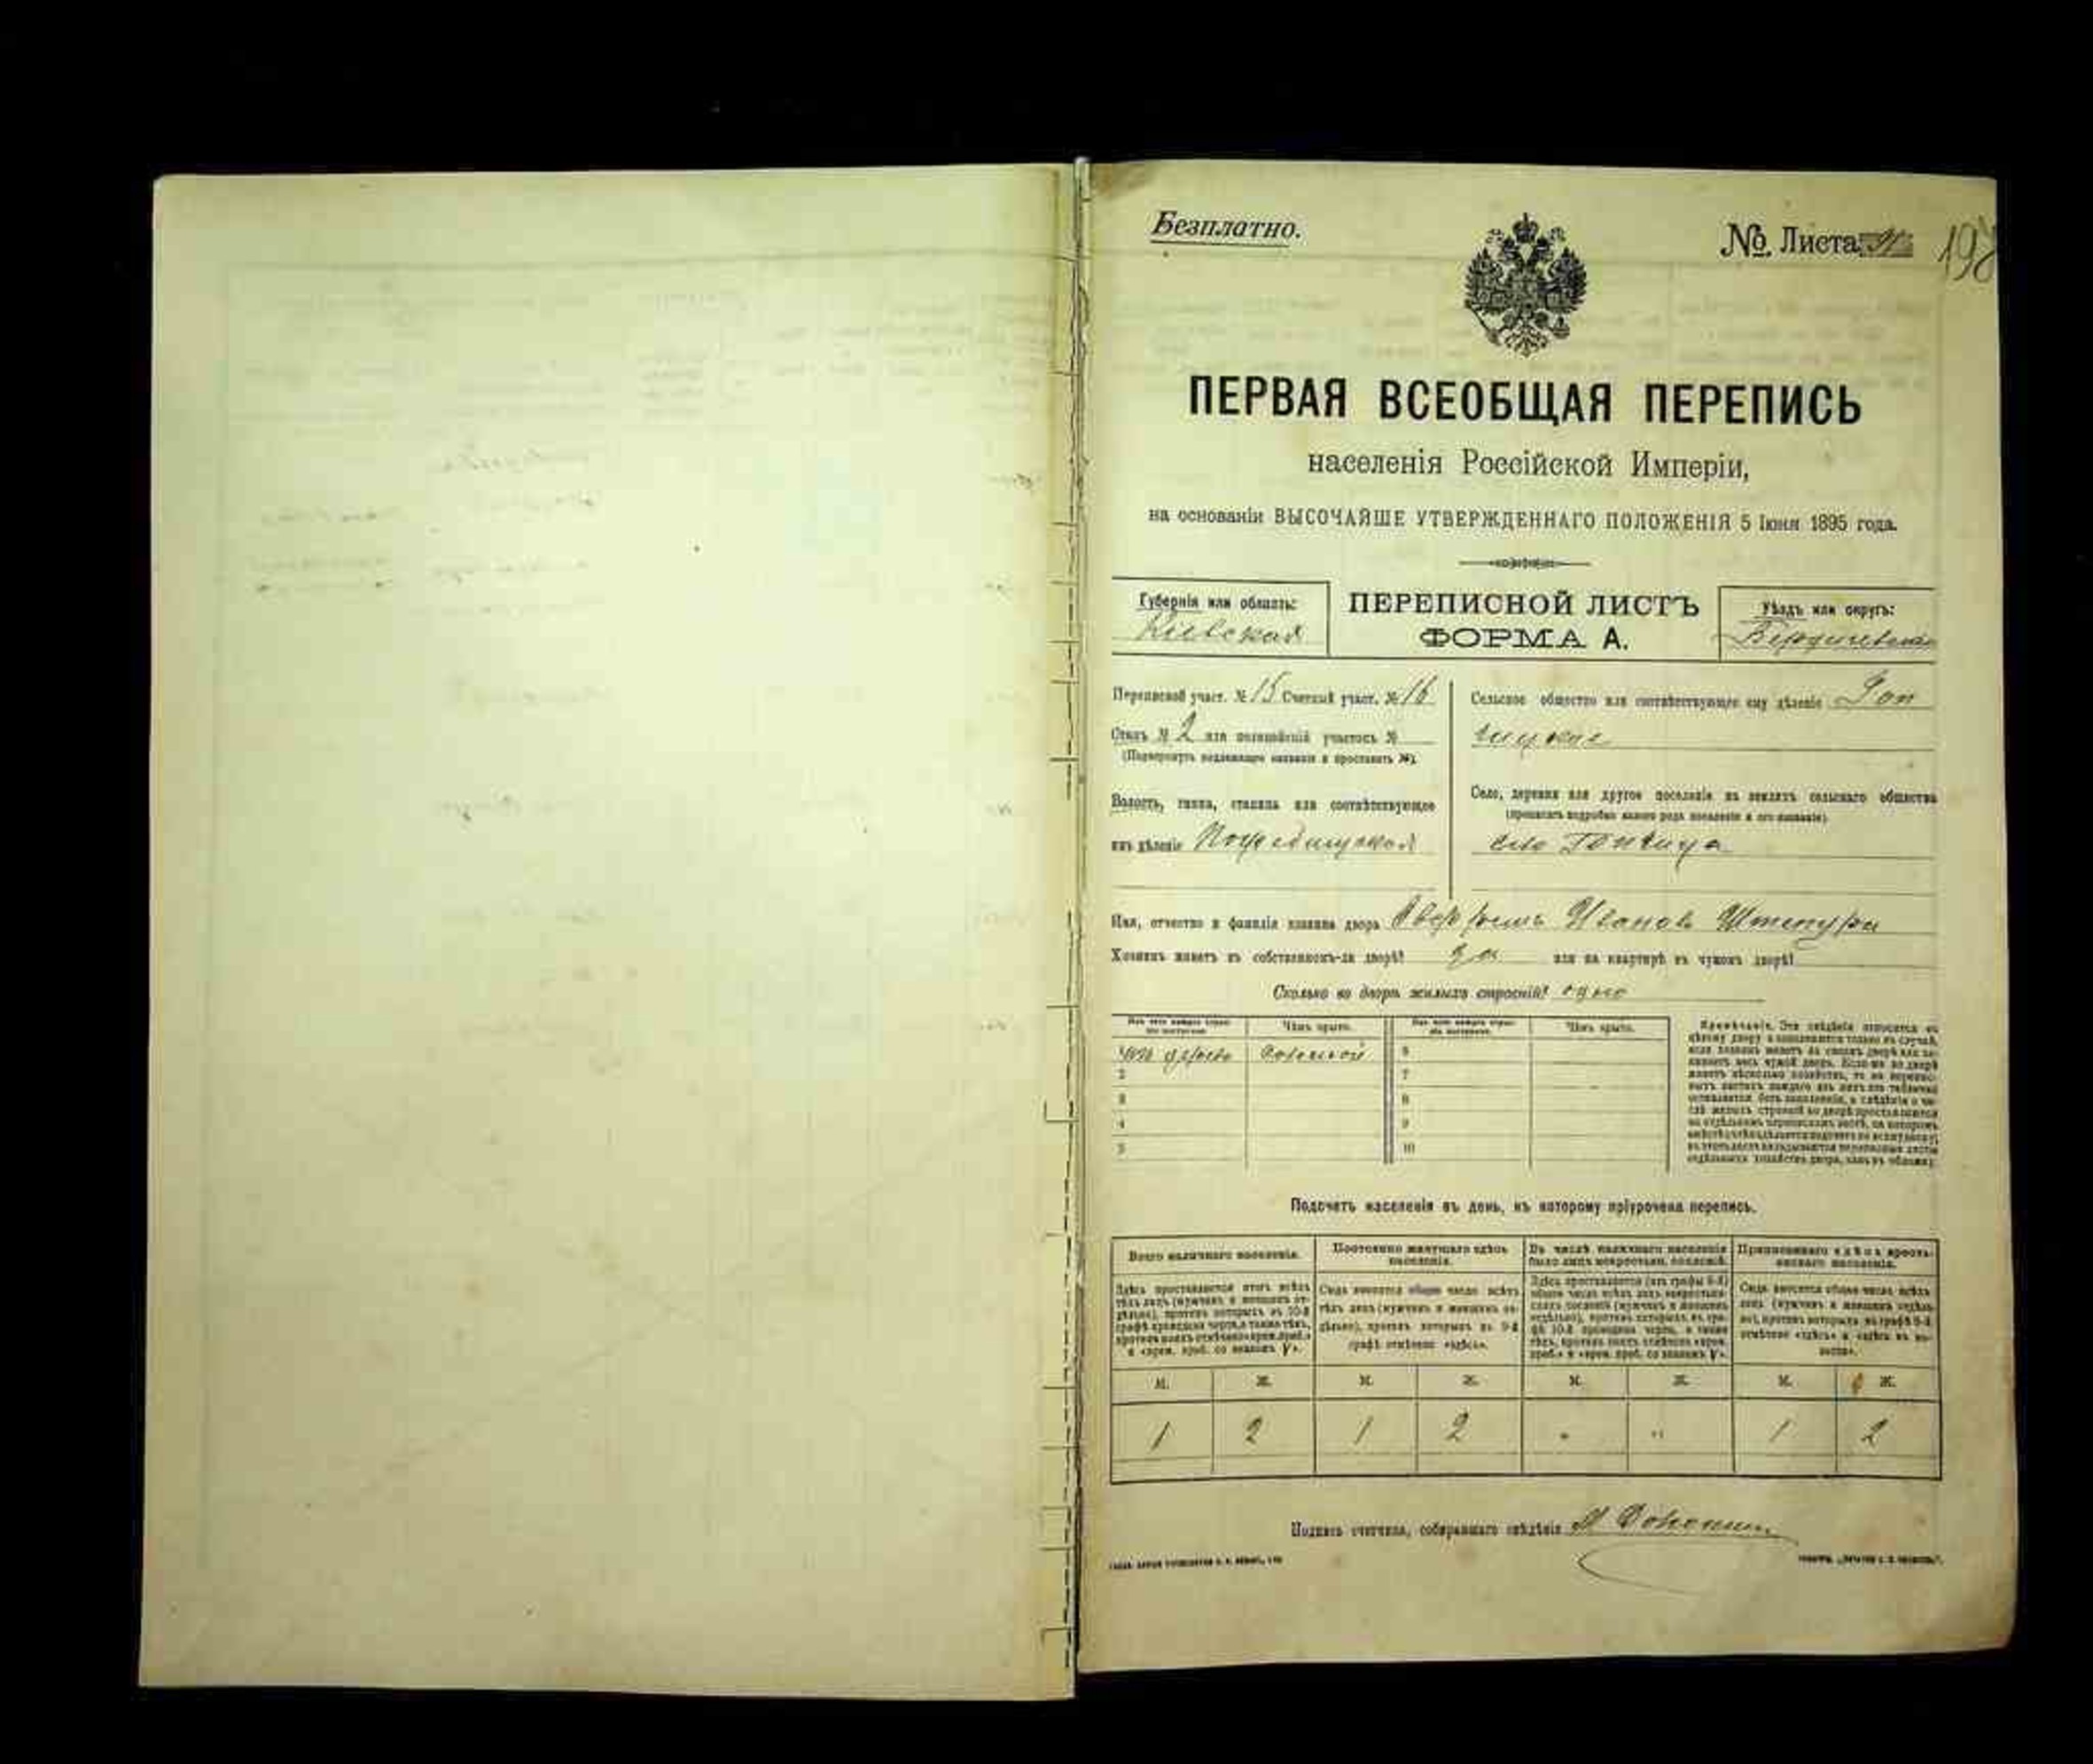 Безплатно.
№ Листа 197
ПЕРВАЯ ВСЕОБЩАЯ ПЕРЕПИСЬ
населенія Россійской Имперіи,
на основаніи ВЫСОЧАЙШЕ УТВЕРЖДЕННАГО ПОЛОЖЕНІЯ 5 Іюня 1895 года.
Губернія или область:
Кіевская
ПЕРЕПИСНОЙ ЛИСТЪ
ФОРМА А.
Уѣздъ или округъ:
Бердичевскій
Переписной участ. № 15 Счетный участ. № 16
Станъ № 2 или полицейскій участокъ №
(Подчеркнуть надлежащее названіе и проставить №).
Волость, гмина, станица или соотвѣтствующее
имъ дѣленіе Погребищская
Сельское общество или соотвѣтствующее ему дѣленіе Гоп
чицкое
Село, деревня или другое поселеніе въ земляхъ сельскаго общества
(прописать подробно какого рода поселеніе и его названіе).
село Гопчица
Имя, отчество и фамилія хозяина двора Иванов
Хозяинъ живетъ въ собственномъ-ли дворѣ? да или на квартирѣ въ чужомъ дворѣ?
Сколько во дворѣ жилыхъ строеній? одно
Изъ чего каждое строеніе построено. Чѣмъ крыто. Изъ чего каждое строеніе построено. Чѣмъ крыто.
дерева Соломой 6
2 7
3 8
4 9
5 10
Примѣчаніе. Эти свѣдѣнія относятся къ
цѣлому двору и заполняются только въ случаѣ,
если хозяинъ живетъ въ своемъ дворѣ или за-
нимаетъ весь чужой дворъ. Если-же во дворѣ
живетъ нѣсколько хозяйствъ, то на перепис-
ныхъ листахъ каждаго изъ нихъ эта табличка
оставляется безъ заполненія, а свѣдѣнія о чи-
слѣ жилыхъ строеній во дворѣ проставляются
на отдѣльномъ переписномъ листѣ, на которомъ
отдѣльныхъ хозяйствъ двора, какъ въ обложку.
Подсчетъ населенія въ день, къ которому пріурочена перепись.
Всего наличнаго населенія.
Здѣсь проставляется итогъ всѣхъ
тѣхъ лицъ (мужчинъ и женщинъ от-
дѣльно), противъ которыхъ въ 10-й
графѣ проведена черта, а также тѣхъ,
противъ коихъ отмѣчено «врем. преб.»
и «врем. преб. со знакомъ V».
Постоянно живущаго здѣсь
населенія.
Сюда вносится общее число всѣхъ
тѣхъ лицъ (мужчинъ и женщинъ от-
дѣльно), противъ которыхъ въ 9-й
графѣ отмѣчено «здѣсь».
Въ числѣ наличнаго населенія
было лицъ некрестьян. сословій.
Здѣсь проставляется (изъ графы 6-й)
общее число всѣхъ лицъ некрестьян-
скихъ сословій (мужчинъ и женщинъ
отдѣльно), противъ которыхъ въ гра-
фѣ 10-й проведена черта, а также
тѣхъ, противъ коихъ отмѣчено «врем.
преб.» и «врем. преб. со знакомъ V».
Приписаннаго здѣсь кресть-
янскаго населенія.
Сюда вносится общее число всѣхъ
лицъ (мужчинъ и женщинъ отдѣль-
но), противъ которыхъ въ графѣ 8-й
отмѣчено «здѣсь» и «здѣсь въ во-
лости».
М. Ж. М. Ж. М. Ж. М. Ж.
1 2 1 2 " " 1 2
Подпись счетчика, собиравшаго свѣдѣнія